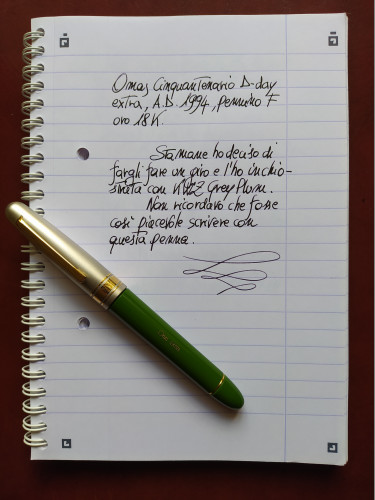 Omas Cinquantenario D-day
extra, A.D. 1994, pennino F
oro 18K.
Stamane ho deciso di
fargli fare un giro e l'ho inchio-
strata con KWZ Grey Plum.
Non ricordavo che fosse
così piacevole scrivere con
questa penna.